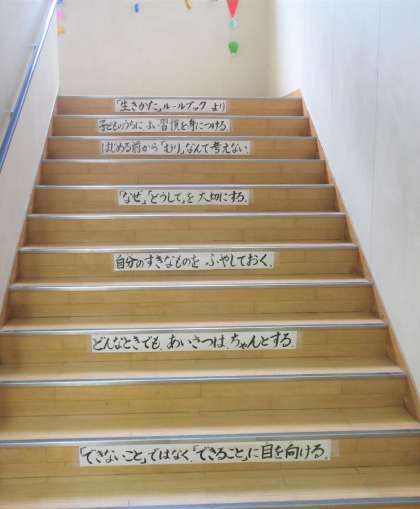 「生きかた」ルールブック より
子どものうちに よい習慣を身につける。
はじめる前から「むり」なんて考えない。
「なぜ」「どうして」を大切にする。
自分のすきなものを ふやしておく。
どんなときでも、あいさつは、ちゃんとする。
「できないこと」ではなく、「できること」に目を向ける。